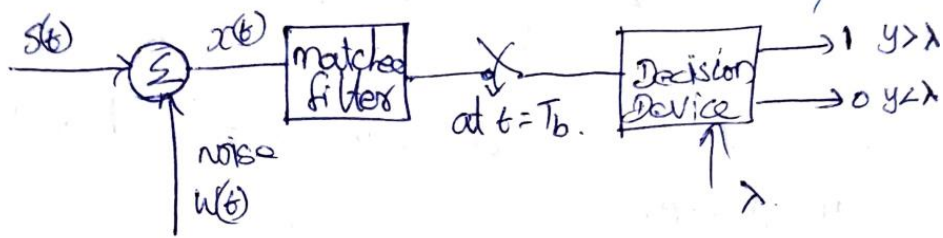 S(t)
x(t)
Σ
Matched
filter
at t = Tb.
Decision
Device
1 y>λ
0 y<λ
noise
W(t)
λ.